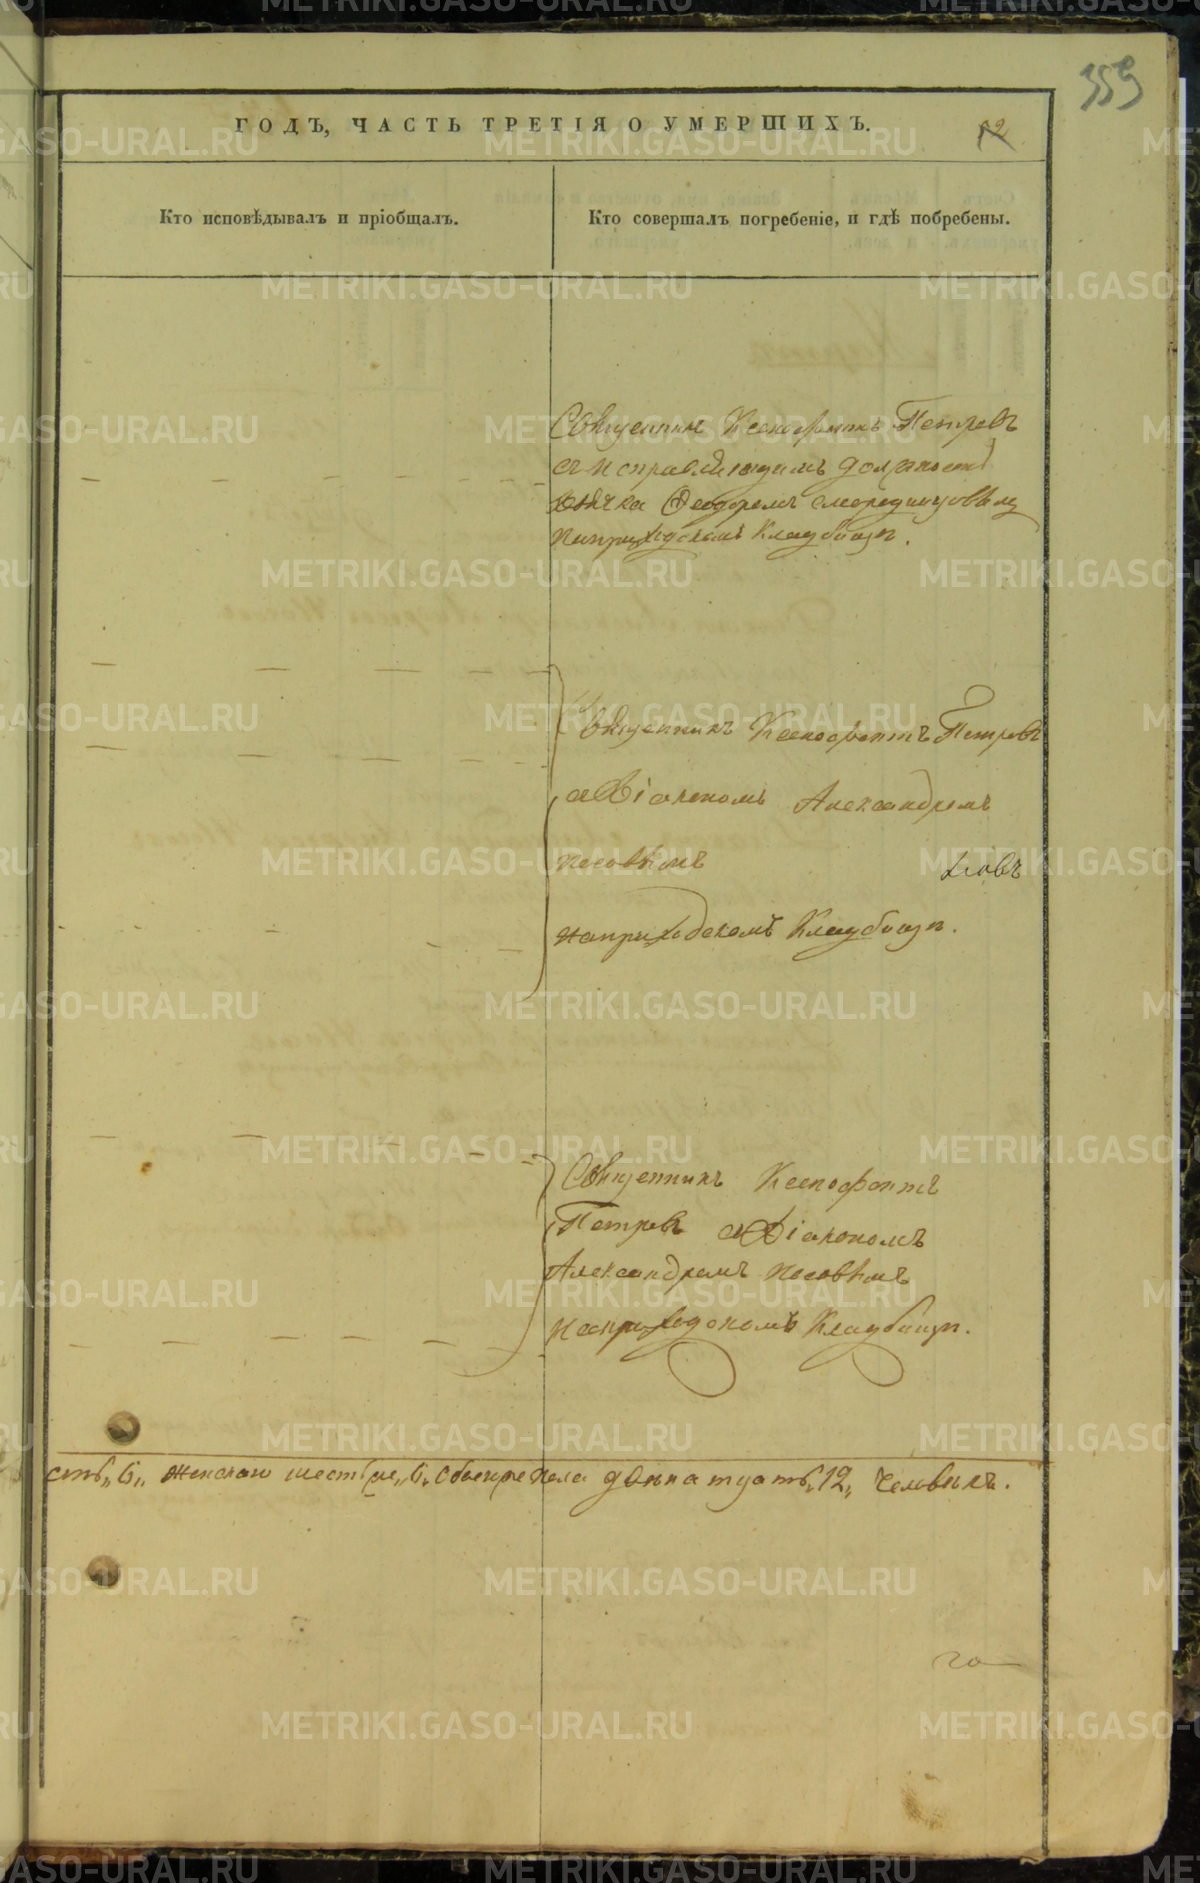 359
ГОДЪ, ЧАСТЬ ТРЕТІЯ О УМЕРШИХЪ.
Кто исповѣдывалъ и пріобщалъ.
Кто совершалъ погребеніе, и гдѣ побребены.
Священник Ксенофонтъ Петровъ
съ исправляющимъ должность
Ѳеодоромъ
на приходскомъ Кладбищѣ.
Священникъ Ксенофонтъ Петровъ
съ Діакономъ Александромъ
Носовымъ
на приходскомъ Кладбищѣ.
Священникъ Ксенофонтъ
Петровъ съ Діакономъ
Александромъ Носовымъ
на приходскомъ Кладбищѣ.
сть „6„ женскаго шесть „6„ обоего пола двѣнатцать „12„ человѣкъ.
METRIKI.GASO-URAL.RU